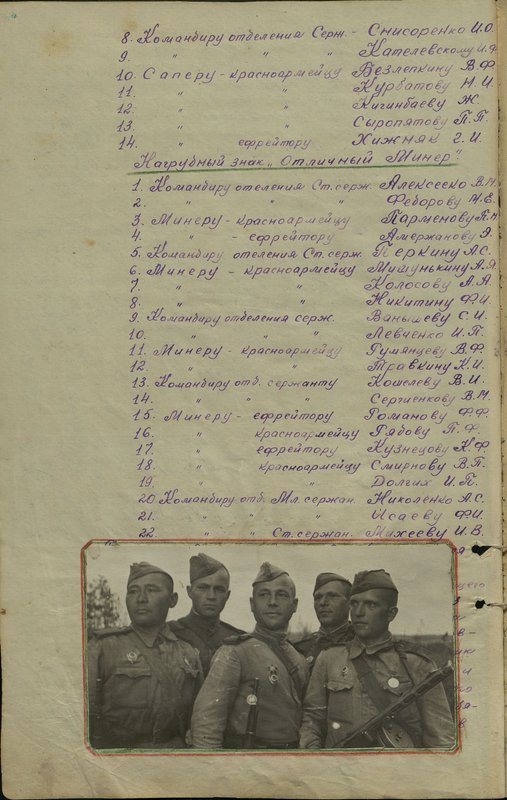 8. Командиру отделения Серж. - Снисоренко И.О.
9. " " " Кателевскому И.Ф.
10. Саперу - красноармейцу Безлепкину В.Ф.
11. " " Курбатову Н.И.
12. " " Кигинбаеву Ж.
13. " " Сыропятову П.П.
14. " ефрейтору Хижняк Г.И.
Нагрубный знак „Отличный Минер"
1. Командиру отеления Ст. серж. Алексеско В.Н.
2. " " " Федорову М.Е.
3. Минеру - красноармейцу Парменову П.Н.
4. " - ефрейтору Амержанову Э.
5. Командиру отеления Ст. серж. Перкину А.С.
6. Минеру - красноармейцу Мишунькину А.Я.
7. " " Колосову А.А.
8. " " Никитину Ф.И.
9. Командиру отделения серж. Ванышеву С.И.
10. " " " Левченко И.П.
11. Минеру - красноармейцу Румянцеву В.Ф.
12 " " Травкину К.И.
13. Командиру отб. сержанту Кошелеву В.И.
14. " " " Сергиенкову В.М.
15. Минеру - ефрейтору Романову Ф.Ф.
16. " красноармейцу Рябову П.Ф.
17. " ефрейтору Кузнецову К.Ф.
18. " красноармейцу Смирнову В.П.
19. " " Долгих И.П.
20 Командиру отб. Мл. сержан. Николенко А.С.
21. " " " Исаеву Ф.И.
22. " " Ст. сержан. Михееву И.В.